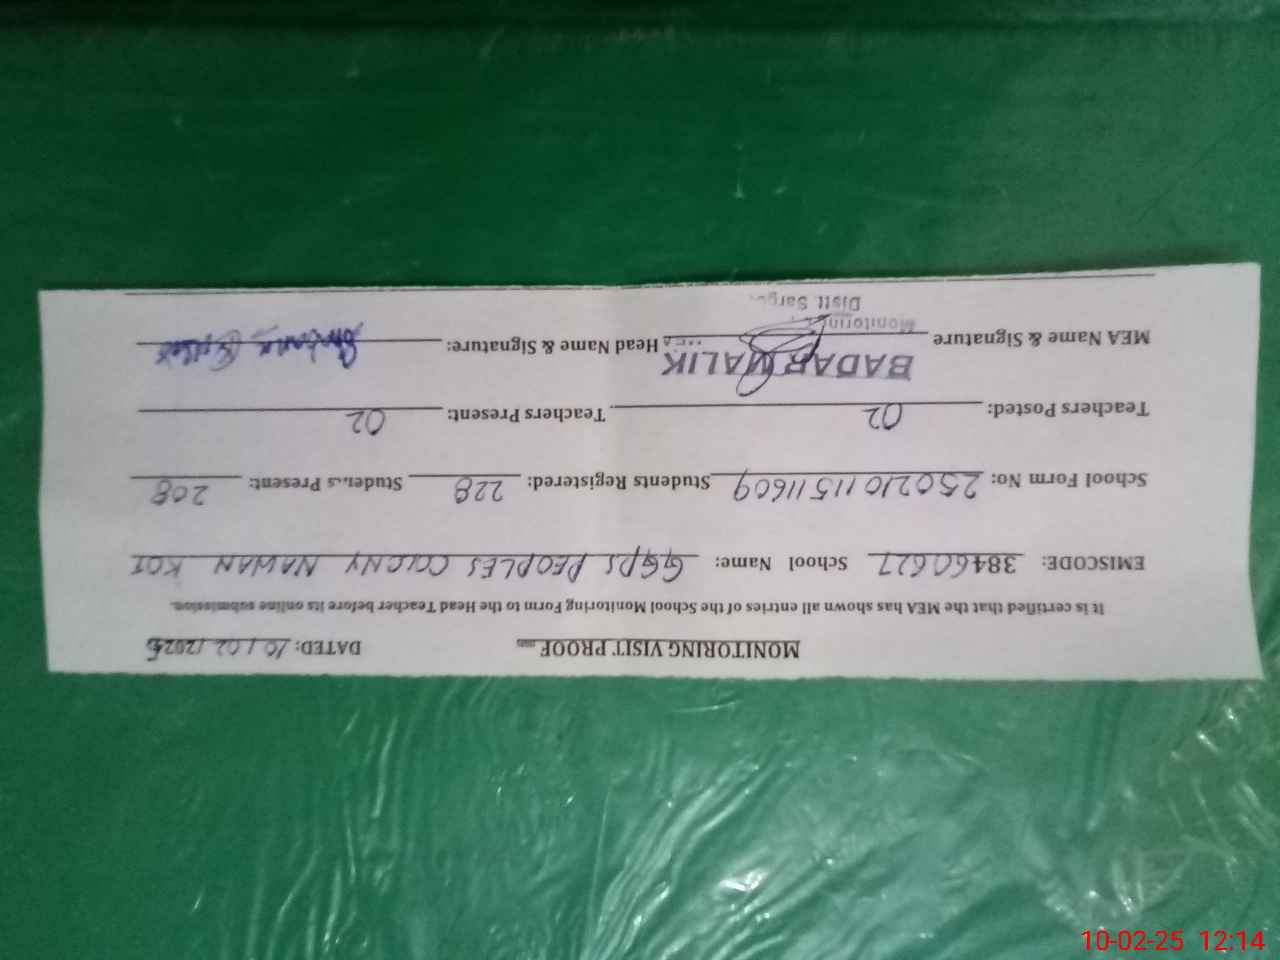 MONITORING VISIT PROOF DATED: 10/02/2025
It is certified that the MEA has shown all entries of the School Monitoring Form to the Head Teacher before its online submission.
EMISCODE: 38460627 School Name: GGPS PEOPLES COLONY NAWAN KOT
School Form No: 2502101151 1609 Students Registered: 228 Students Present: 208
Teachers Posted: 02 Teachers Present: 02
BADAR MALIK
MEA Name & Signature Head Name & Signature:
Monitorin
Distt. Sargo
10-02-25 12:14